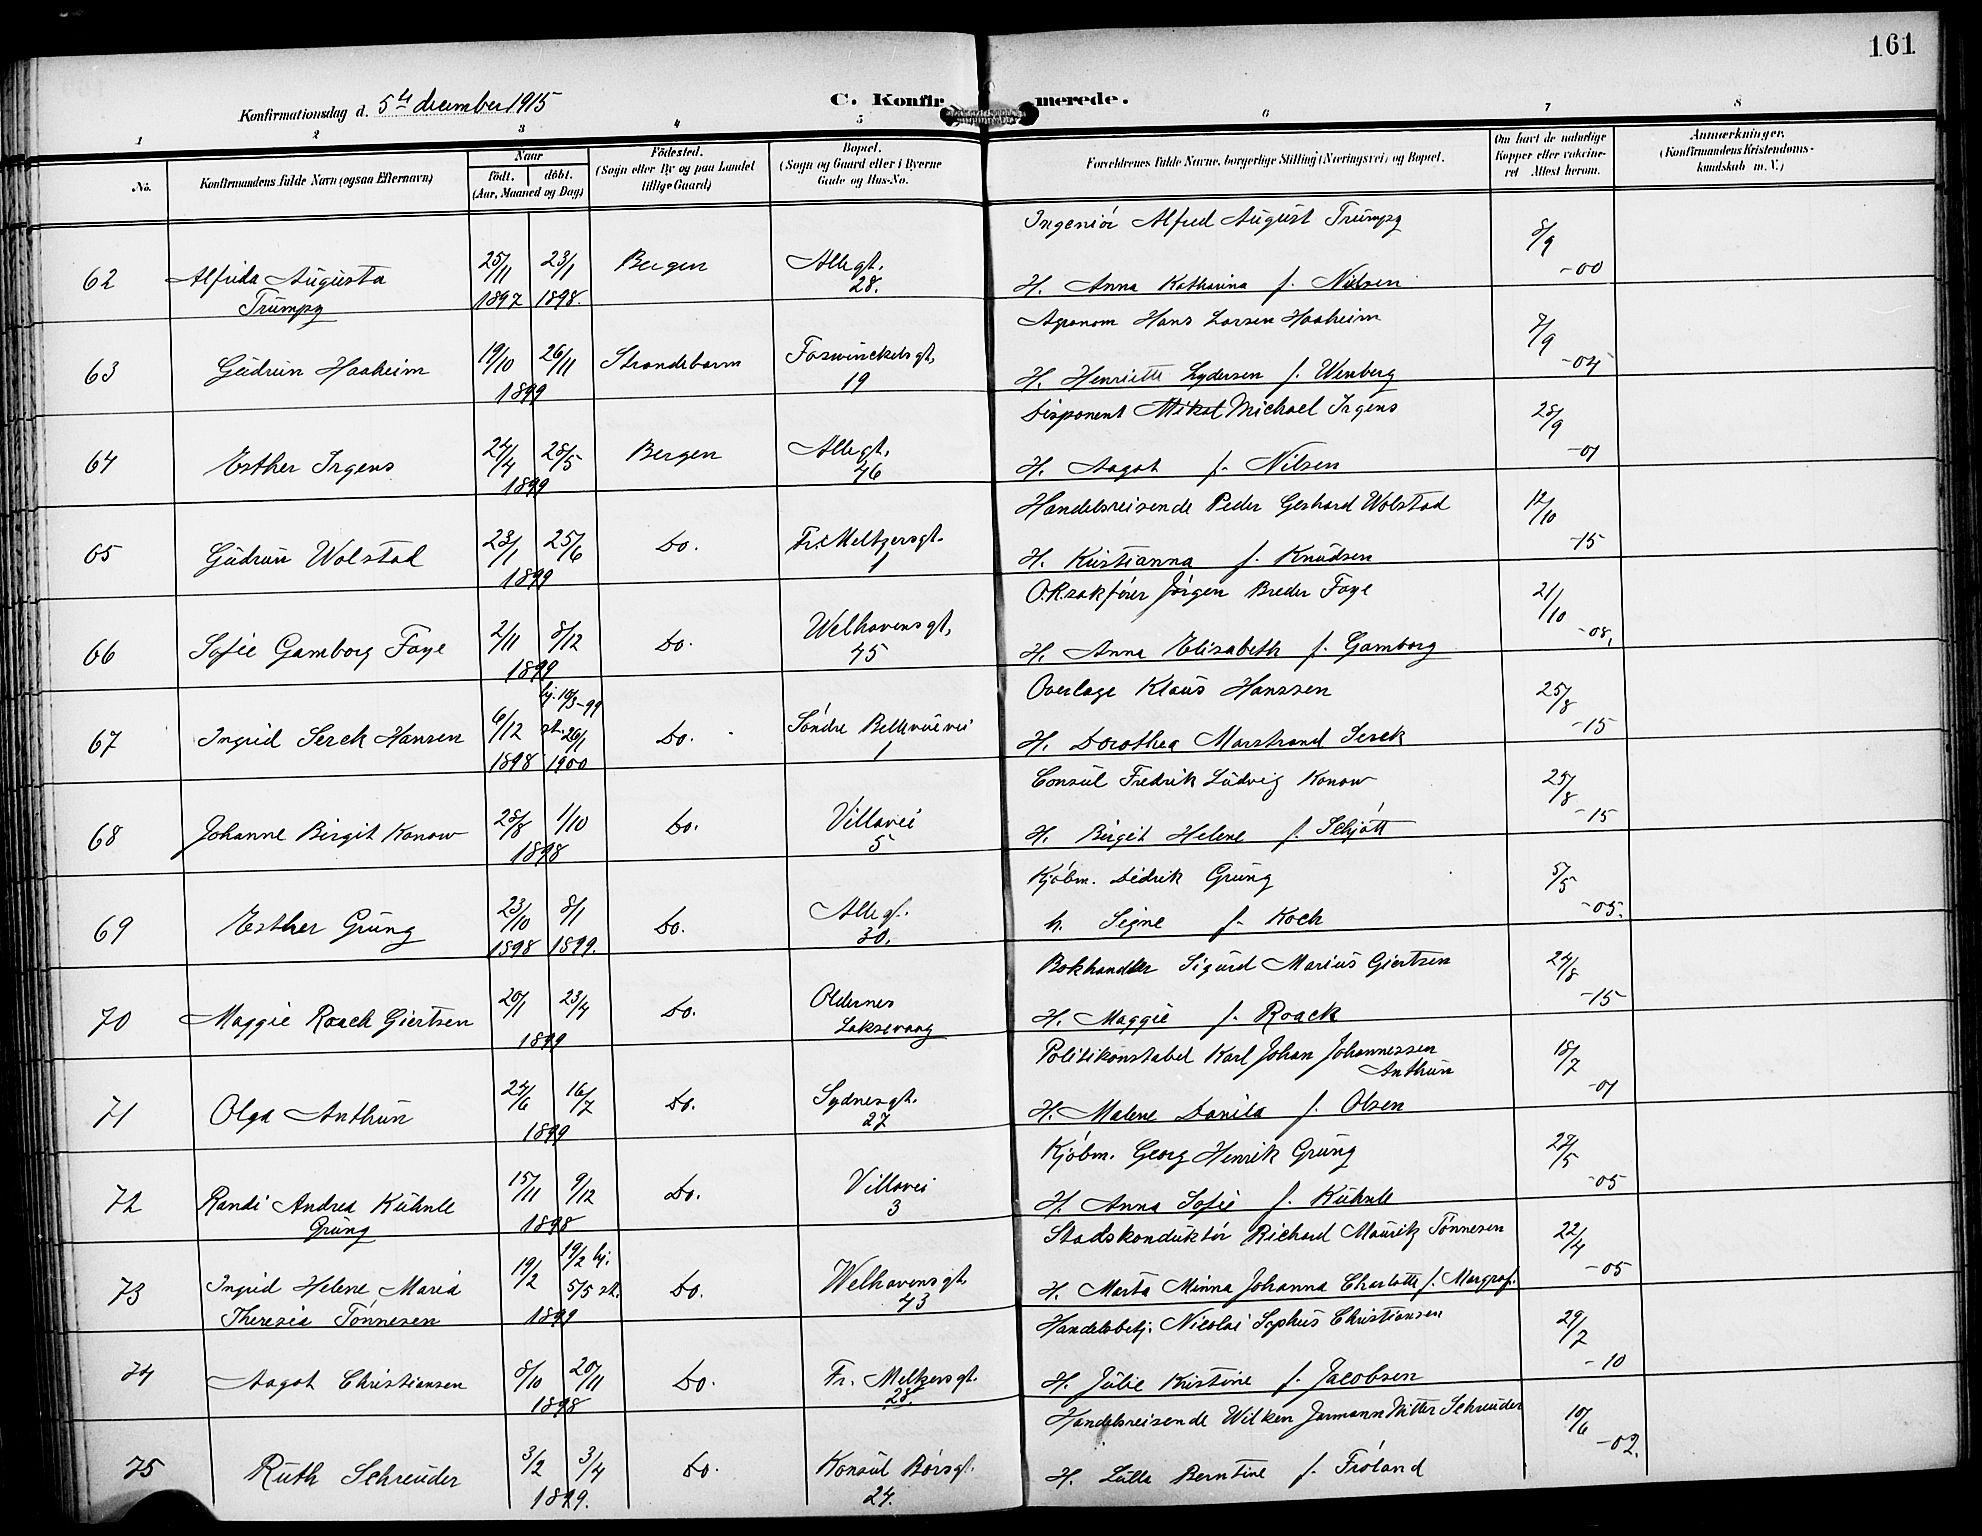 161
Konfirmationsdag d. 5te december 1915
C. Konfirmerede.
1 2 3 4 5 6 7 8
No.
Konfirmandens fulde Navn (ogsaa Efternavn)
Naar
födt. döbt.
(Aar, Maaned og Dag)
Födested.
(Sogn eller By og paa Landet
tillige Gaard)
Bopæl.
(Sogn og Gaard eller i Byerne
Gade og Hus-No.
Forældrenes fulde Navne, borgerlige Stilling (Næringsvei) og Bopæl.
Om havt de naturlige
Kopper eller vakcine-
ret Attest herom.
Anmærkninger.
(Konfirmandens Kristendoms-
kundskab m. V.)
62 Alfrida Augusta
Trumpy
25/11 1897 23/1 1898.
Bergen
Allegt.
28.
Ingeniör Alfred August Trumpy
H. Anna Katharina f. Nilsen
8/9 -00
63 Gudrun Haaheim
19/10 26/11
1899
Strandebarm
Fosswinckelsgt.
19
Agronom Hans Larsen Haaheim
H. Henriette Lydersen f. Wenberg
7/9 -04
64 Esther Irgens
24/4 28/5
1899
Bergen
Allegt.
46
Disponent Mikal Michael Irgens
H. Aagot f. Nilsen
28/9 -01
65 Gudrun Wolstad
23/1 25/6
1899
Do.
Fr. Meltzersgt.
1
Handelsreisende Peder Gerhard Wolstad
H. Kristianna f. Knudsen
12/10 -15
66 Sofie Gamborg Faye
2/11 8/12
1899
Do.
Welhavensgt.
45
O.R.sakförer Jörgen Breder Faye
H. Anna Elisabeth f. Gamborg
21/10 -08.
67 Ingrid Serck Hansen
6/12 1898
hj. 18/3-99
st. 26/1 1900
Do.
Söndre Bellevuevei
1
Overlæge Klaus Hanssen
H. Dorothea Marstrand Serck
25/8 -15
68 Johanne Birgit Konow
28/8 1/10
1898
Do.
Villavei
5
Consul Fredrik Ludvig Konow
H. Birgit Helene f. Schjött
25/8 -15
69 Esther Grung
23/10 1898 8/1 1899.
Do.
Allegt.
30.
Kjöbm. Didrik Grung
h. Signe f. Koch
5/5 -05.
70 Maggie Roack Giertsen
20/1 23/4
1899
Do.
Oldernes
Laksevaag
Bokhandler Sigurd Marius Giertsen
H. Maggie f. Roack
24/8 -15
71 Olga Anthun
24/6 16/7
1899
Do.
Sydnesgt.
27
Politikonstabel Karl Johan Johannessen
Anthun
H. Malene Danila f. Olsen
18/7 -01
72 Randi Andrea Kühnle
Grung
15/11 9/12
1898
Do.
Villavei
3
Kjöbm. Georg Henrik Grung
H. Anna Sofie f. Kühnle
28/5 -05
73 Ingrid Helene Maria
Theresia Tönnesen
19/2
19/2 hj.
5/5 st.
1899
Do.
Welhavensgt.
43
Stadskonduktör Richard Mauritz Tönnesen
H. Marta Minna Johanna Charlotte f. Margraf.
22/4 -05
74 Aagot Christiansen
8/10 20/11
1898
Do.
Fr. Meltzersgt.
28.
Handelsbetj. Nicolai Sophus Christiansen
H. Julie Kristine f. Jacobsen
29/7 -10
75 Ruth Schreuder
3/2 3/4
1899.
Do.
Konsul Börsgt.
24.
Handelsreisende Wilken Jarmann Nitter Schreuder
H. Lulla Berntine f. Fröland
10/6 -02.